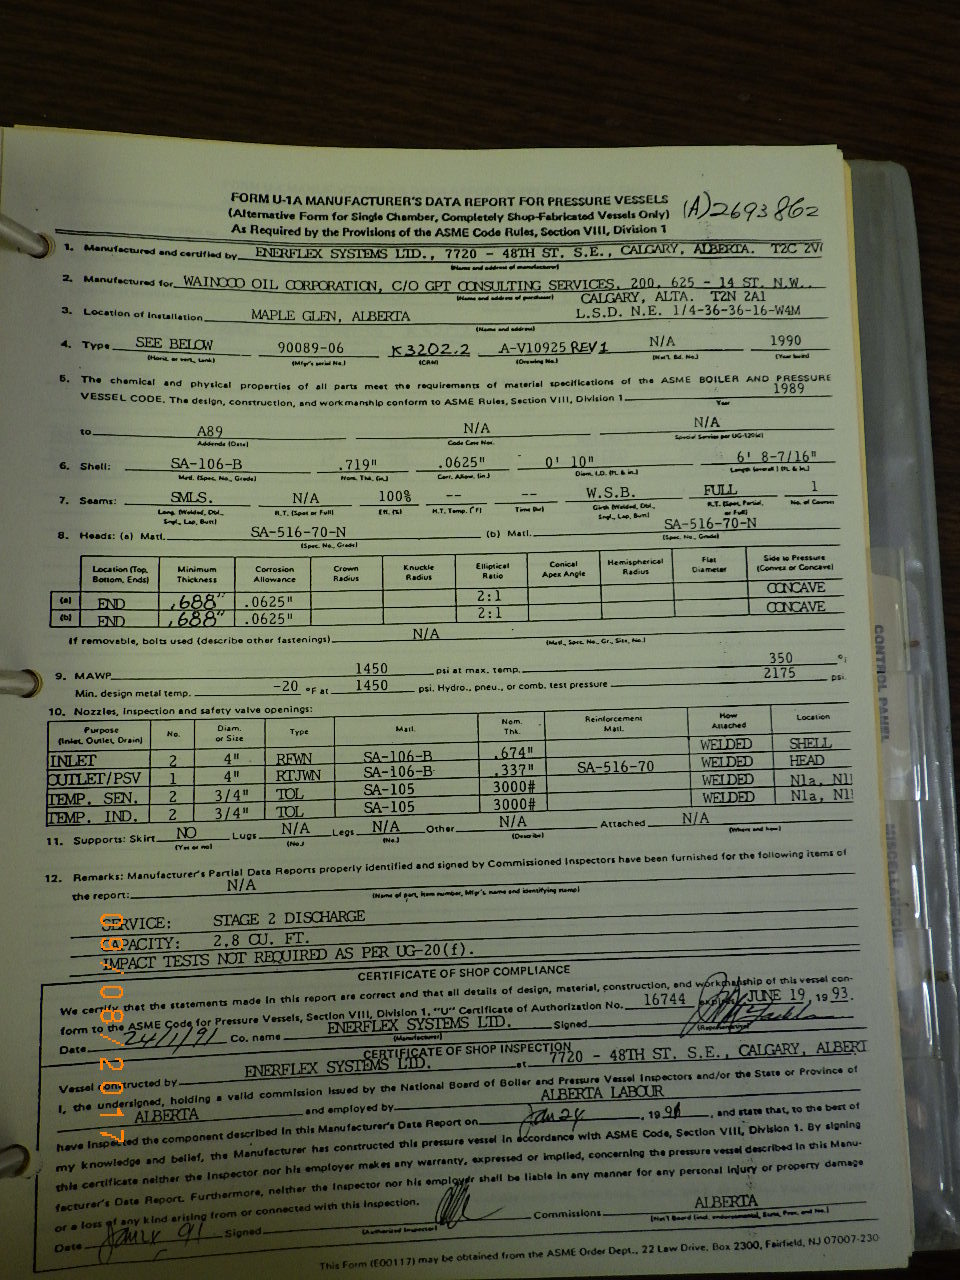 FORM U-1A MANUFACTURER'S DATA REPORT FOR PRESSURE VESSELS
(A)2693862
(Alternative Form for Single Chamber, Completely Shop-Fabricated Vessels Only)
As Required by the Provisions of the ASME Code Rules, Section VIII, Division 1
1. Manufactured and certified by ENERFLEX SYSTEMS LTD., 7720 - 48TH ST. S.E., CALGARY, ALBERTA. T2C 2V
(Name and address of manufacturer)
2. Manufactured for WAINOCO OIL CORPORATION, C/O GPT CONSULTING SERVICES, 200, 625 - 14 ST. N.W.,
(Name and address of purchaser) CALGARY, ALTA. T2N 2A1
3. Location of Installation MAPLE GLEN, ALBERTA L.S.D. N.E. 1/4-36-36-16-W4M
(Name and address)
4. Type SEE BELOW 90089-06 K3202.2 A-V10925 REV1 N/A 1990
(Horiz. or vert., tank) (Mfg's serial No.) (CRN) (Drawing No.) (Nat'l. Bd. No.) (Year built)
5. The chemical and physical properties of all parts meet the requirements of material specifications of the ASME BOILER AND PRESSURE
VESSEL CODE. The design, construction, and workmanship conform to ASME Rules, Section VIII, Division 1 1989
Year
to A89 N/A N/A
Addenda (Date) Code Case Nos. Special Service per UG-120(d)
6. Shell: SA-106-B .719" .0625" 0' 10" 6' 8-7/16"
Matl. (Spec. No., Grade) Nom. Thk. (in.) Corr. Allow. (in.) Diam. I.D. (ft. & in.) Length (overall) (ft. & in.)
7. Seams: SMLS. N/A 100% -- -- W.S.B. FULL 1
Long. (Welded, Dbl., Sngl., Lap, Butt) R.T. (Spot or Full) Eff. (%) H.T. Temp. (°F) Time (hr) Girth (Welded, Dbl., Sngl., Lap, Butt) R.T. (Spot, Partial, or Full) No. of Courses
8. Heads: (a) Matl. SA-516-70-N (b) Matl. SA-516-70-N
(Spec. No., Grade) (Spec. No., Grade)
Location (Top, Bottom, Ends) Minimum Thickness Corrosion Allowance Crown Radius Knuckle Radius Elliptical Ratio Conical Apex Angle Hemispherical Radius Flat Diameter Side to Pressure (Convex or Concave)
(a) END .688" .0625" 2:1 CONCAVE
(b) END .688" .0625" 2:1 CONCAVE
If removable, bolts used (describe other fastenings) N/A
(Matl., Spec. No., Gr., Size, No.)
9. MAWP 1450 psi at max. temp. 350 °
Min. design metal temp. -20 °F at 1450 psi. Hydro., pneu., or comb. test pressure 2175 psi.
10. Nozzles, inspection and safety valve openings:
Purpose (Inlet, Outlet, Drain) No. Diam. or Size Type Matl. Nom. Thk. Reinforcement Matl. How Attached Location
INLET 2 4" RFWN SA-106-B .674" WELDED SHELL
OUTLET/PSV 1 4" RTJWN SA-106-B .337" SA-516-70 WELDED HEAD
TEMP. SEN. 2 3/4" TOL SA-105 3000# WELDED N1a, N1
TEMP. IND. 2 3/4" TOL SA-105 3000# WELDED N1a, N1
11. Supports: Skirt NO Lugs N/A Legs N/A Other N/A Attached N/A
(Yes or no) (No.) (No.) (Describe) (Where and how)
12. Remarks: Manufacturer's Partial Data Reports properly identified and signed by Commissioned Inspectors have been furnished for the following items of
the report: N/A
(Name of part, item number, Mfg's. name and identifying stamp)
SERVICE: STAGE 2 DISCHARGE
CAPACITY: 2.8 CU. FT.
IMPACT TESTS NOT REQUIRED AS PER UG-20(f).
CERTIFICATE OF SHOP COMPLIANCE
We certify that the statements made in this report are correct and that all details of design, material, construction, and workmanship of this vessel con-
form to the ASME Code for Pressure Vessels, Section VIII, Division 1. "U" Certificate of Authorization No. 16744 expires JUNE 19, 1993.
Date 24/1/91 Co. name ENERFLEX SYSTEMS LTD. Signed
(Manufacturer) (Representative)
CERTIFICATE OF SHOP INSPECTION
Vessel constructed by ENERFLEX SYSTEMS LTD. at 7720 - 48TH ST. S.E., CALGARY, ALBERT
I, the undersigned, holding a valid commission issued by the National Board of Boiler and Pressure Vessel Inspectors and/or the State or Province of
ALBERTA and employed by ALBERTA LABOUR
have inspected the component described in this Manufacturer's Data Report on Jan 24, 1991, and state that, to the best of
my knowledge and belief, the Manufacturer has constructed this pressure vessel in accordance with ASME Code, Section VIII, Division 1. By signing
this certificate neither the Inspector nor his employer makes any warranty, expressed or implied, concerning the pressure vessel described in this Manu-
facturer's Data Report. Furthermore, neither the Inspector nor his employer shall be liable in any manner for any personal injury or property damage
or a loss of any kind arising from or connected with this inspection.
Date Jan 24 91 Signed Commissions ALBERTA
(Authorized Inspector) (Nat'l Board (incl. endorsements), State, Prov. and No.)
This Form (E00117) may be obtained from the ASME Order Dept., 22 Law Drive, Box 2300, Fairfield, NJ 07007-230
CONTROL PANEL
MISCELLANEOUS
09/08/2017